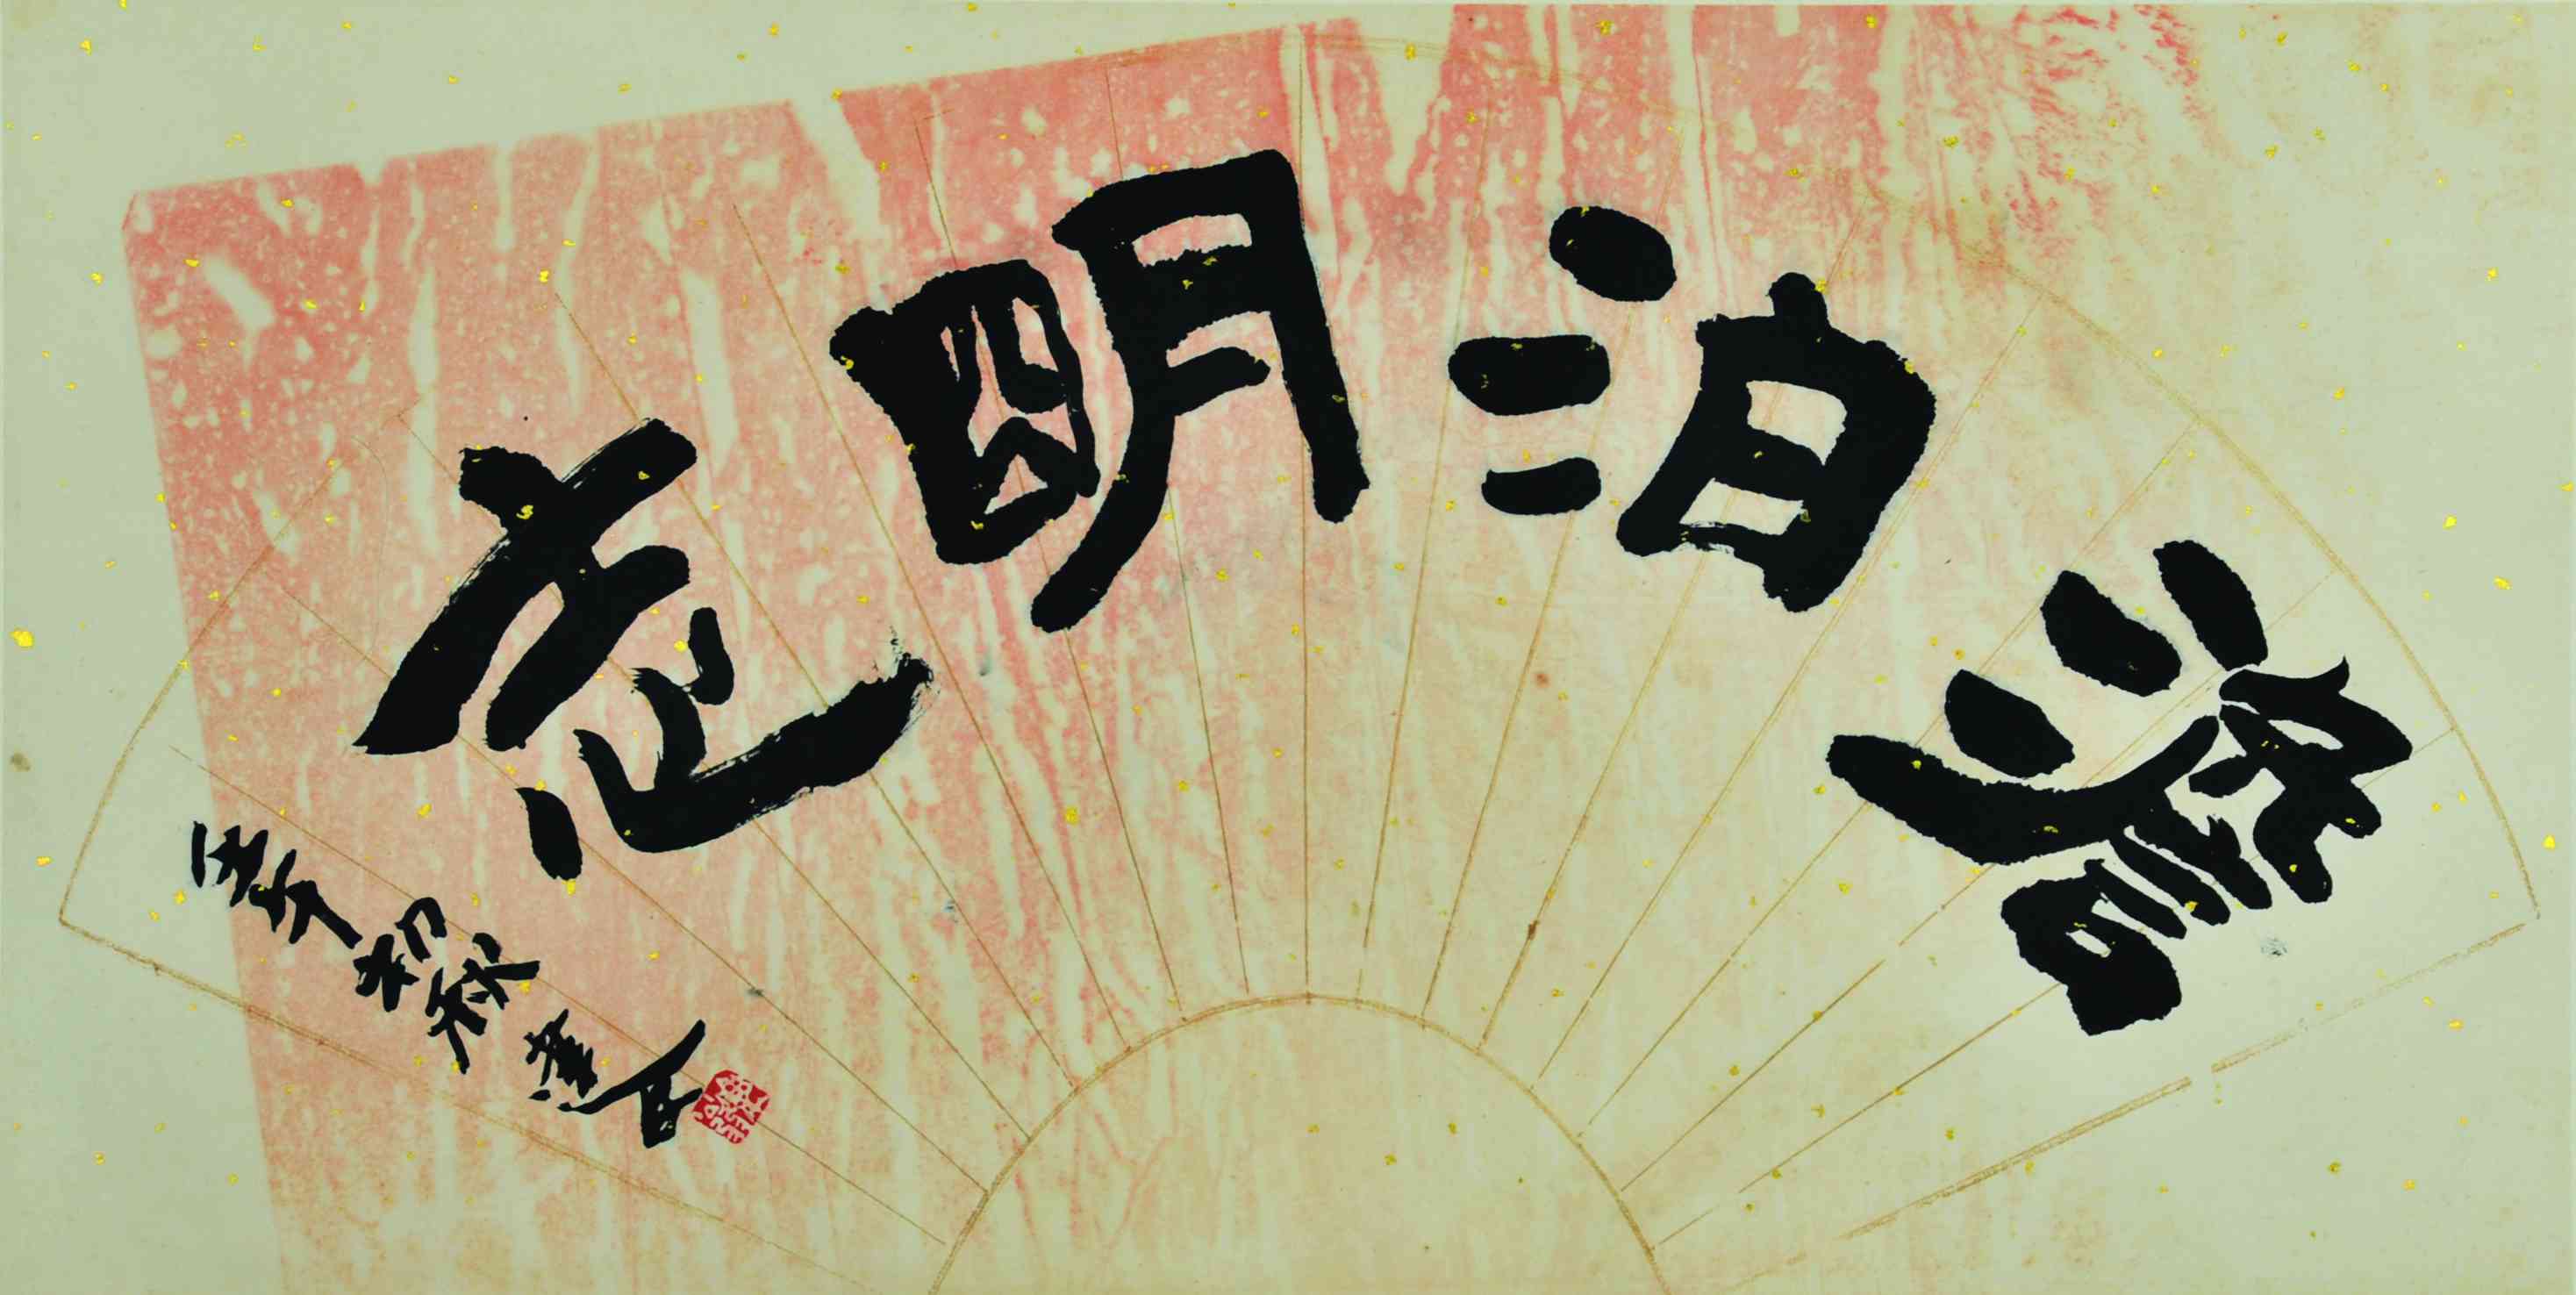 澹泊明志
壬午初秋